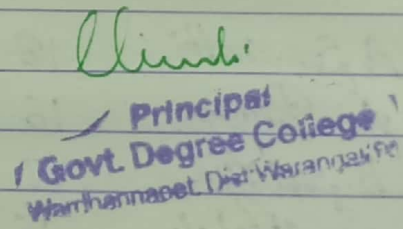 Principal
Govt. Degree College
Wardhannapet, Dist-Warangal